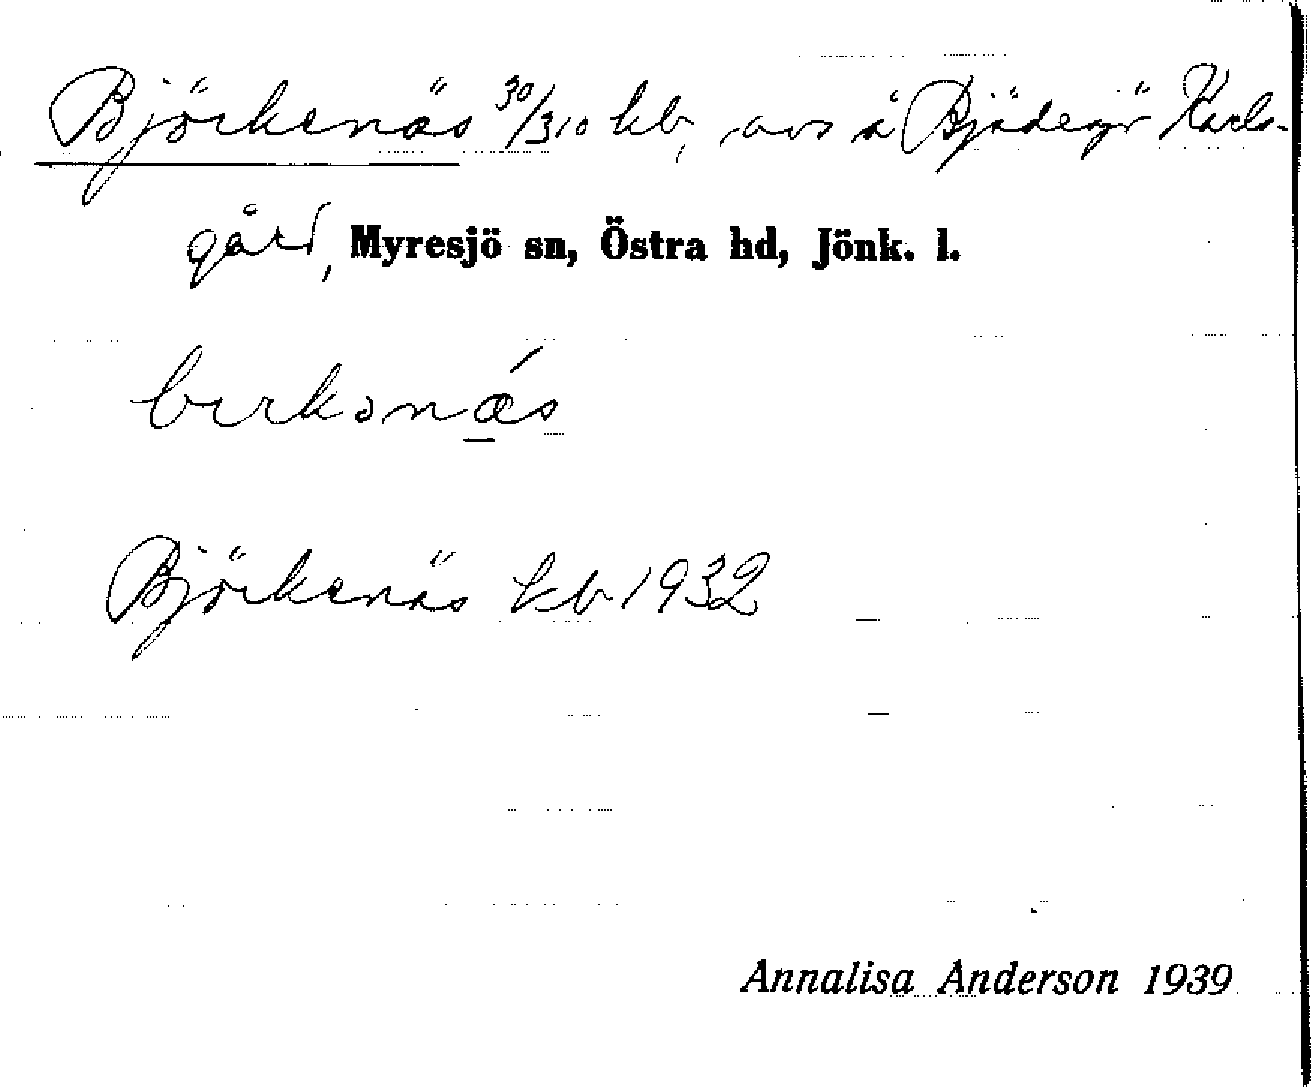 Björkenäs 30/310 kb, avs å Bjädesjö Karls-
gård, Myresjö sn, Östra hd, Jönk. l.
Björkenäs kb 1932
Annalisa Anderson 1939